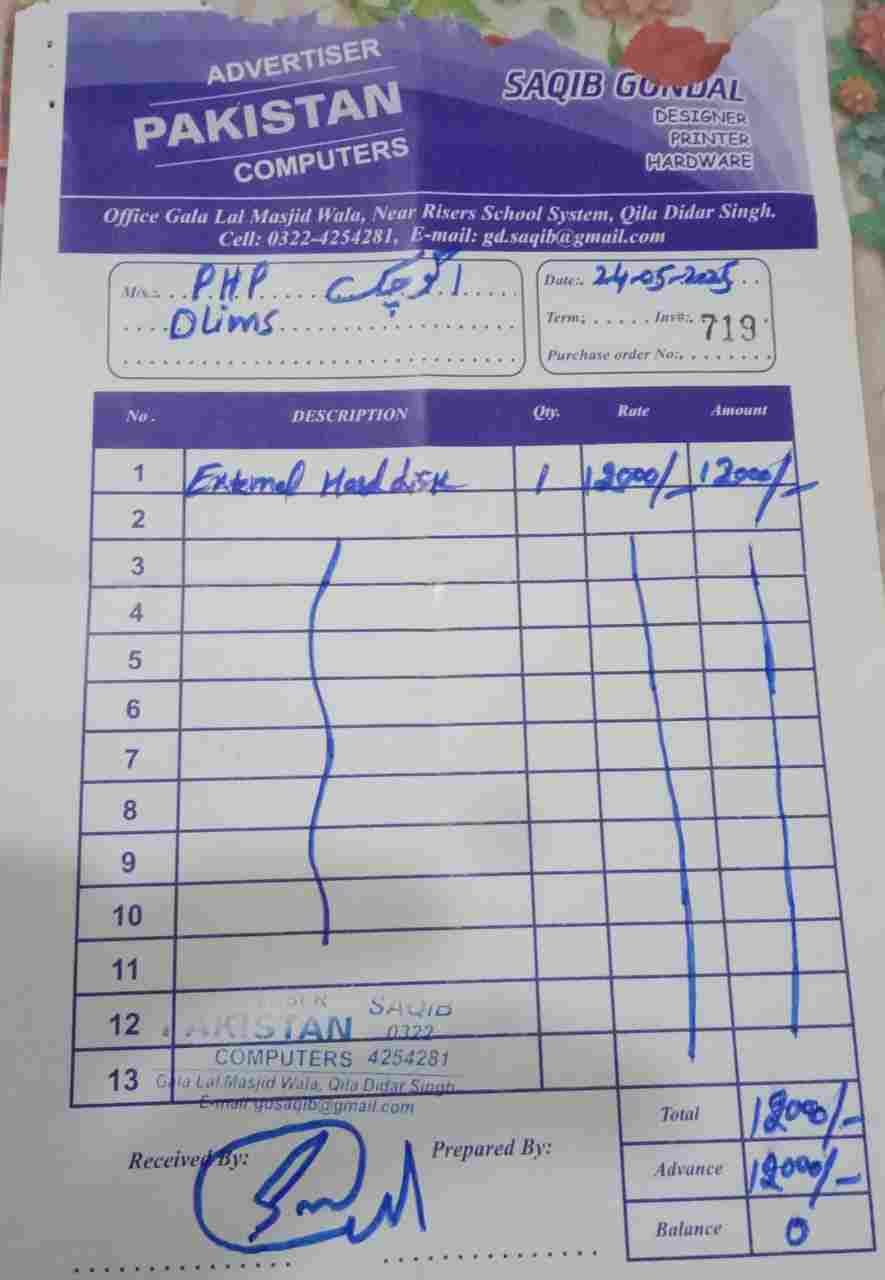 ADVERTISER
PAKISTAN
COMPUTERS
SAQIB GONDAL
DESIGNER
PRINTER
HARDWARE
Office Gala Lal Masjid Wala, Near Risers School System, Qila Didar Singh.
Cell: 0322-4254281, E-mail: gd.saqib@gmail.com
M/s:. P.H.P
Dlims
Date:. 24-05-2025
Term: Inv#:. 719
Purchase order No:
No . DESCRIPTION Qty. Rate Amount
1 External Hard disk 1 12000/- 12000/-
2
3
4
5
6
7
8
9
10
11
12
13
SAQIB
PAKISTAN 0322
COMPUTERS 4254281
Gala Lal Masjid Wala, Qila Didar Singh
E-mail gdsaqib@gmail.com
Total 12000/-
Advance 12000/-
Balance 0
Received By:
Prepared By: